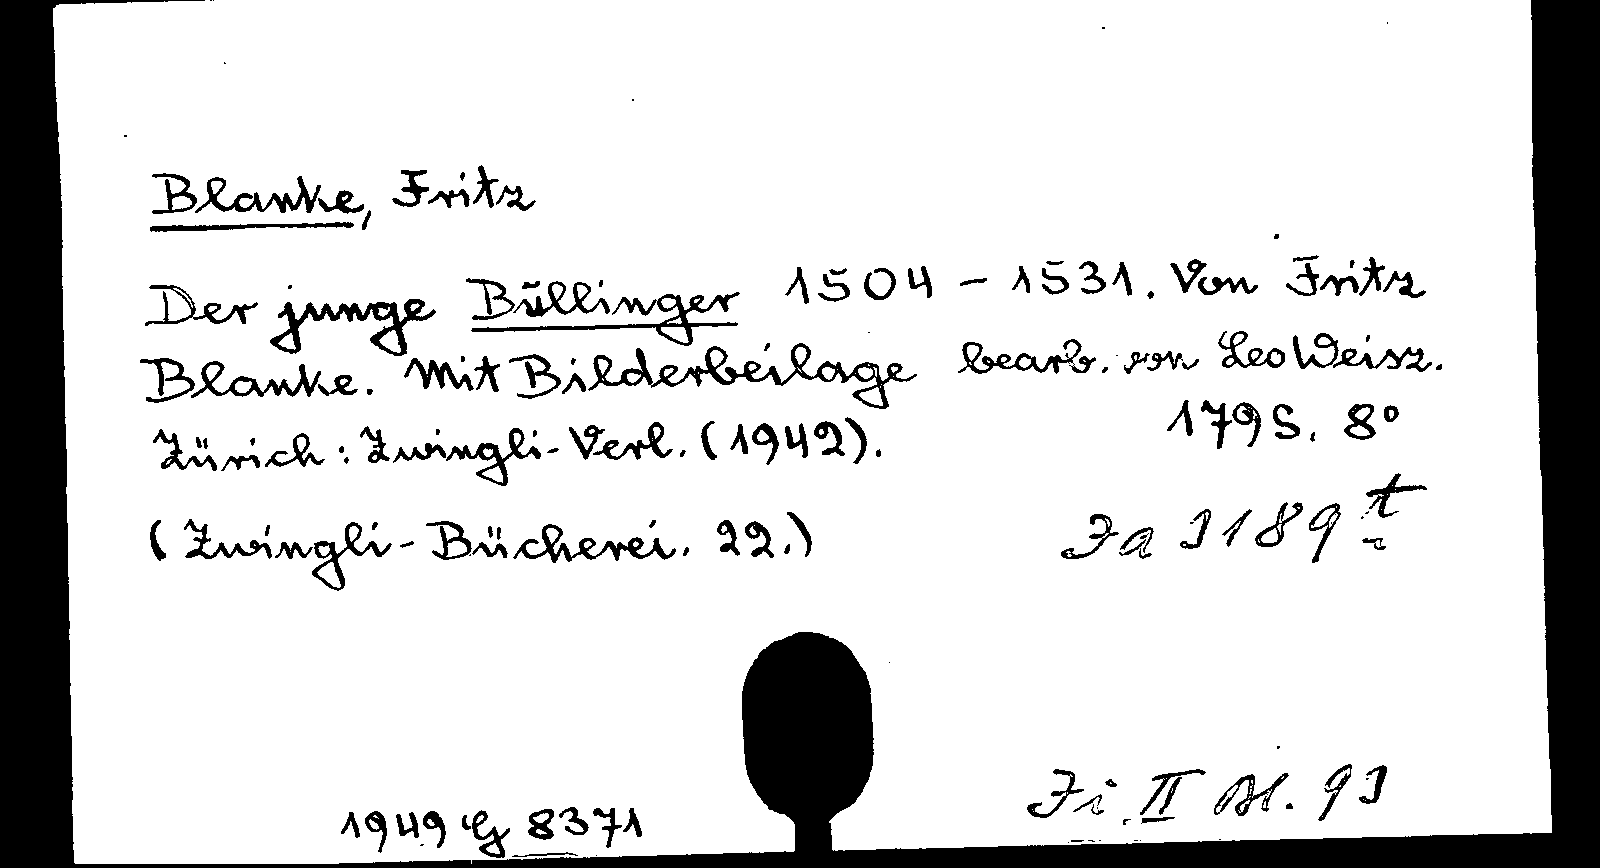 Blanke, Fritz
Der junge Bullinger 1504 - 1531. Von Fritz
Blanke. Mit Bilderbeilage bearb. von Leo Weisz.
Zürich: Zwingli-Verl. (1942). 179 S. 8°
(Zwingli-Bücherei. 22.) Ja 3189 t
1949 G 8371 Ji II Bl. 93